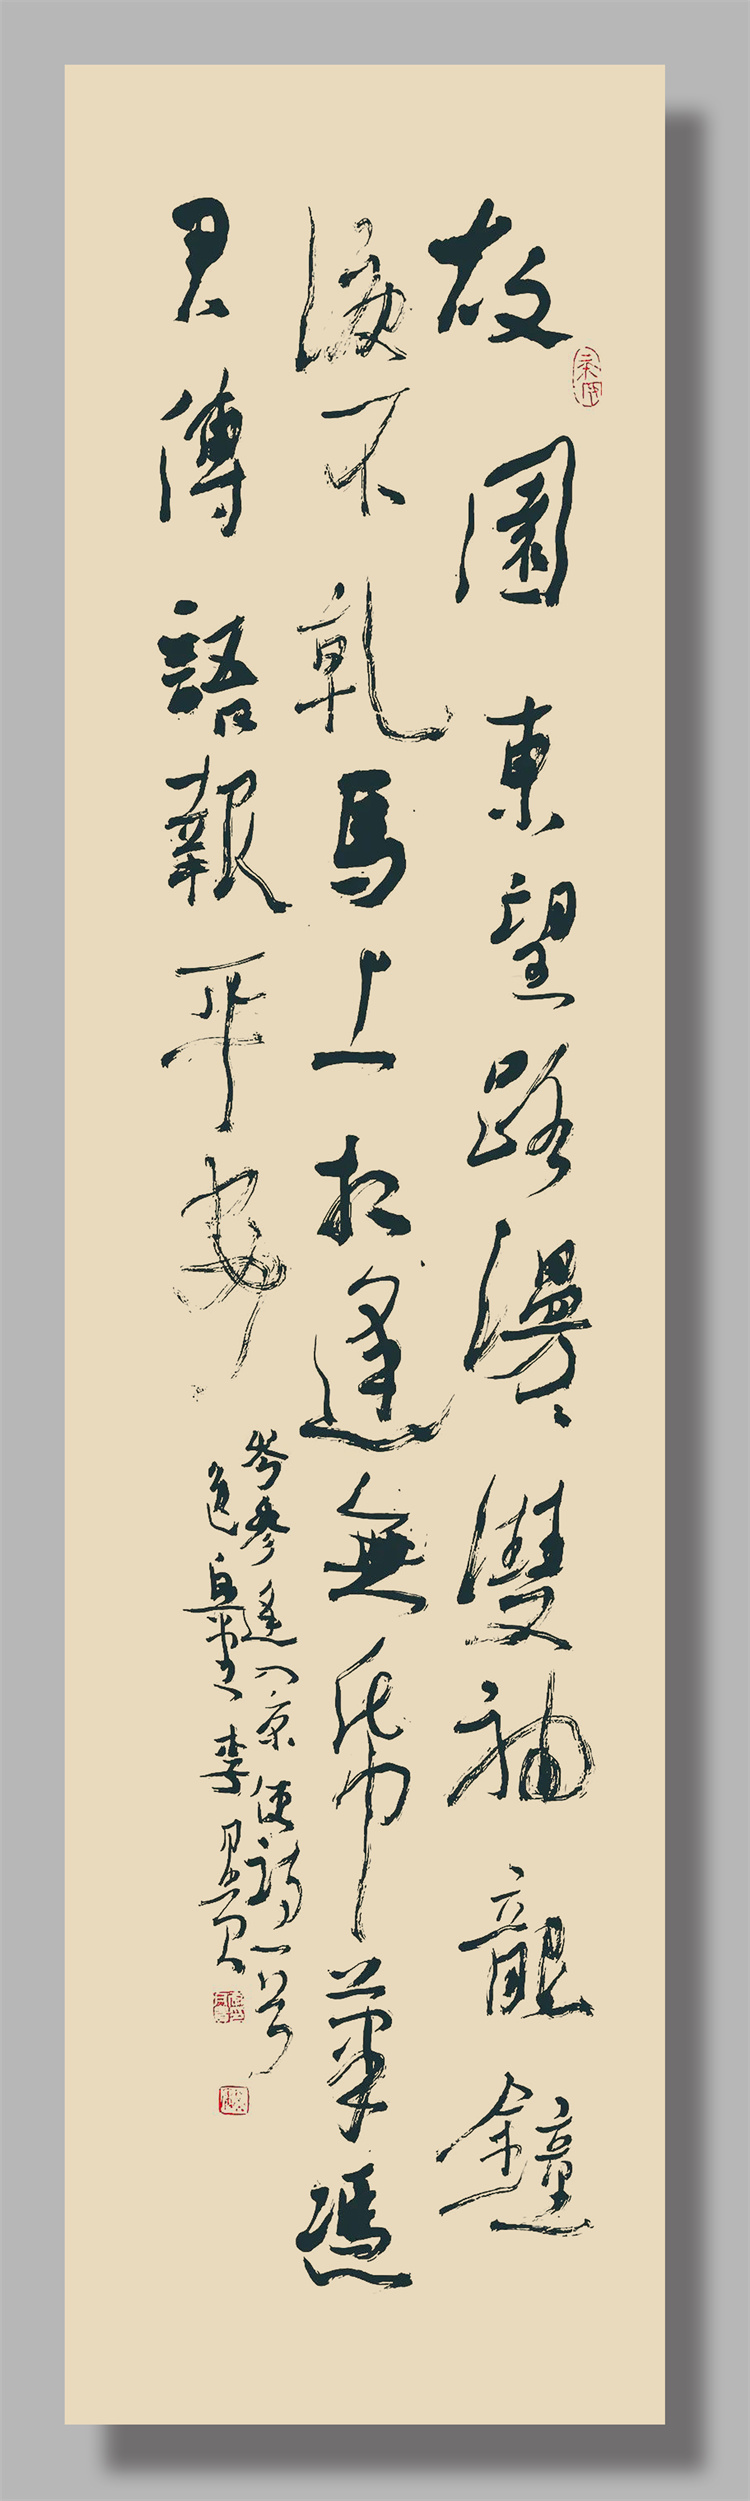 故園東望路漫漫雙袖龍鐘
淚不乾馬上相逢無紙筆憑
君傳語報平安
岑參逢入京使詩一首
李